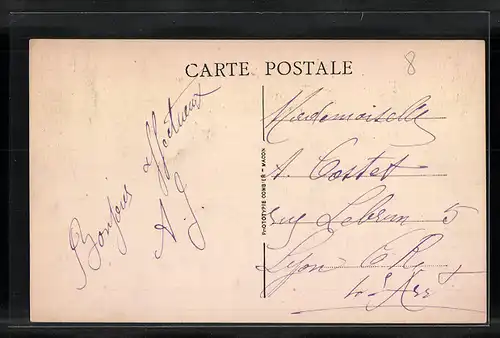 CARTE POSTALE
8
Bonjour
affectueux
A. J.
PHOTOTYPIE COMBIER - MACON
Mademoiselle
A. Costet
rue Lebrun 5
Lyon C. R.
4e Arr